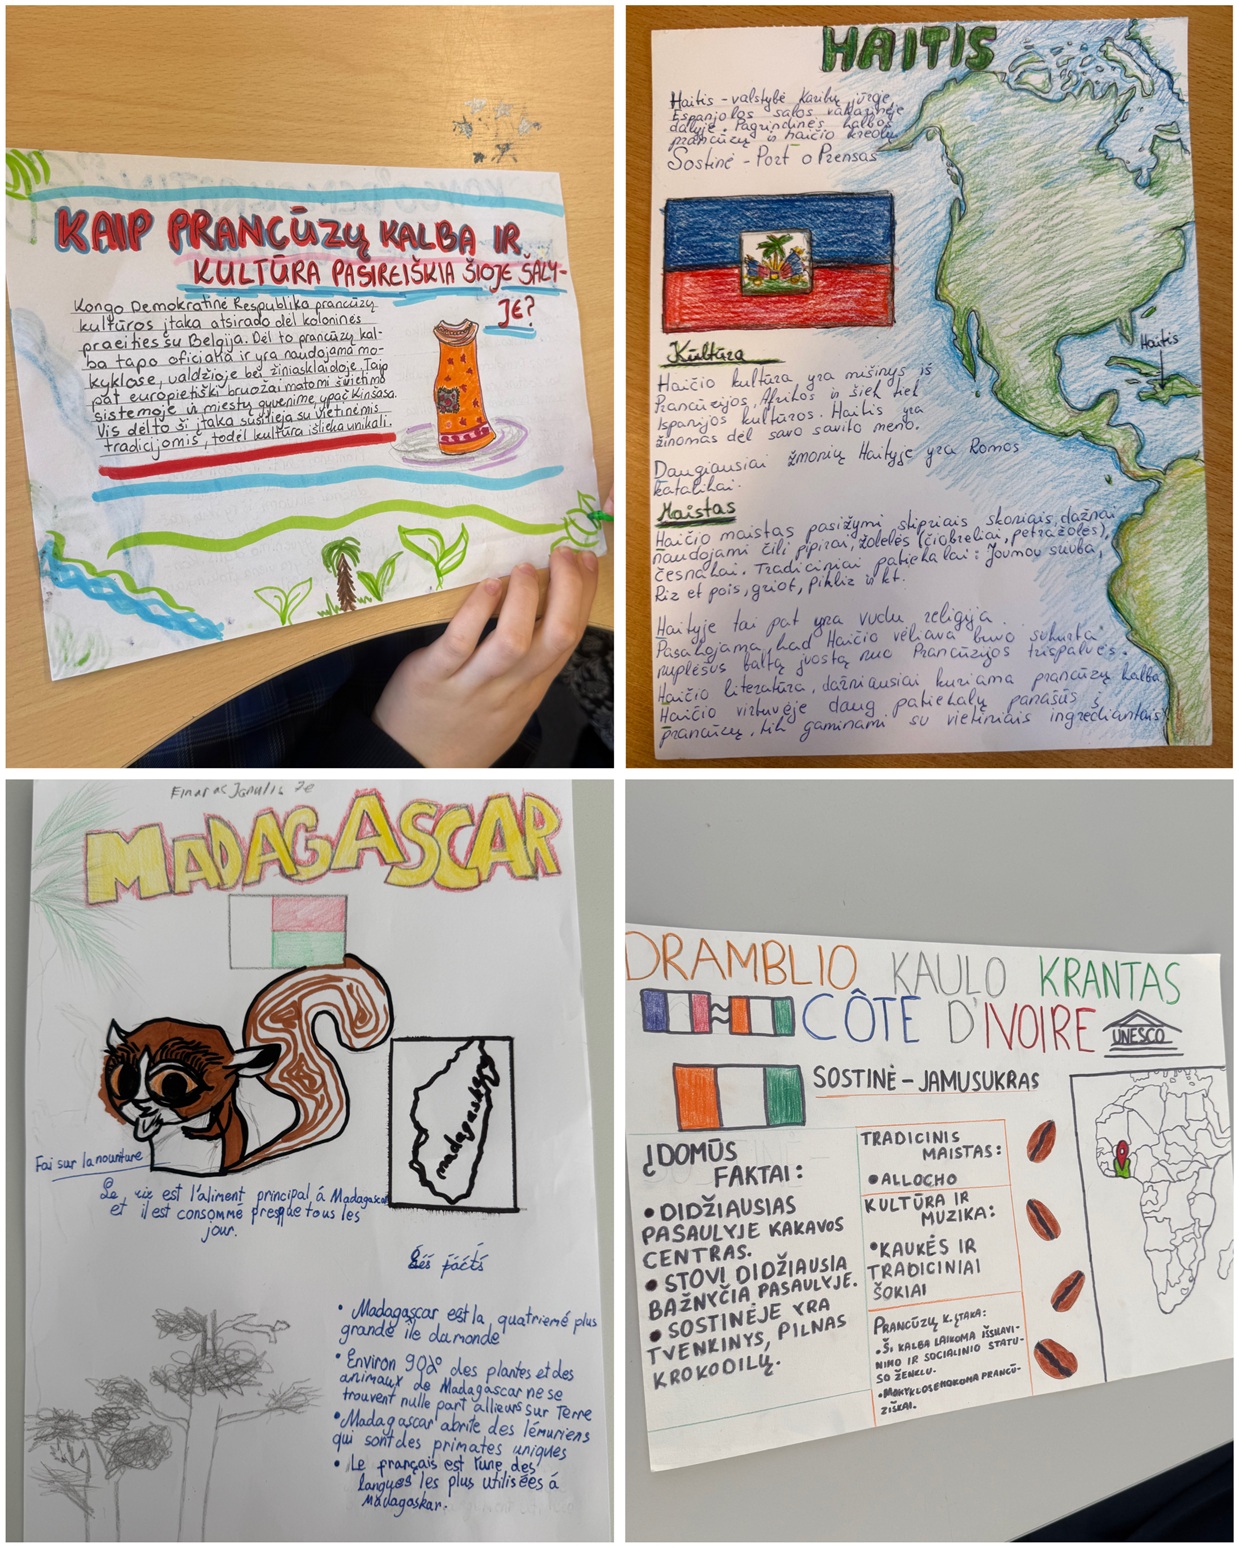 KAIP PRANCŪZŲ KALBA IR
KULTŪRA PASIREIŠKIA ŠIOJE ŠALY-
JE?
Kongo Demokratinė Respublika prancūzų
kultūros įtaka atsirado dėl koloninės
praeities su Belgija. Dėl to prancūzų kal-
ba tapo oficialia ir yra naudojama mo-
kyklose, valdžioje bei žiniasklaidoje. Taip
pat europietiški bruožai matomi švietimo
sistemoje ir miestų gyvenime ypač Kinšasa.
Vis dėlto ši įtaka susilieja su vietinėmis
tradicijomis, todėl kultūra išlieka unikali.
HAITIS
Haitis - valstybė Karibų jūroje,
Espanjolos salos vakarinėje
dalyje. Pagrindinės kalbos
prancūzų ir haičio kreolų
Sostinė - Port o Prensas
Haitis
Kultūra
Haičio kultūra yra mišinys iš
Prancūzijos, Afrikos ir šiek tiek
Ispanijos kultūros. Haitis yra
žinomas dėl savo savito meno.
Daugiausiai žmonių Haityje yra Romos
katalikai.
Maistas
Haičio maistas pasižymi stipriais skoniais, dažnai
naudojami čili pipirai, žolelės (čiobreliai, petražolės),
česnakai. Tradiciniai patiekalai: Joumou sriuba,
Riz et pois, griot, pikliz ir kt.
Haityje tai pat yra vudu religija.
Pasakojama, kad Haičio vėliava buvo sukurta
nuplėšus baltą juostą nuo Prancūzijos trispalvės.
Haičio literatūra, dažniausiai kuriama prancūzų kalba
Haičio virtuvėje daug patiekalų panašūs į
prancūzų, tik gaminami su vietiniais ingredientais
Einaras Janulis 7e
MADAGASCAR
madagaskar
Fai sur la nourriture
Le, riz est l'aliment principal á Madagascar
et il est consommé presque tous les
jour.
Madagascar est la quatriemé plus
grande île du monde
Environ 90% des plantes et des
animaux de Madagascar ne se
trouvent nulle part allieurs sur Terre
Madagascar abrite des lémuriens
qui sont des primates uniques
Le français est l'une des
langues les plus utilisées á
Madagaskar.
DRAMBLIO KAULO KRANTAS
≈ CÔTE D'IVOIRE
UNESCO
SOSTINĖ - JAMUSUKRAS
ĮDOMŪS
FAKTAI:
• DIDŽIAUSIAS
PASAULYJE KAKAVOS
CENTRAS.
• STOVI DIDŽIAUSIA
BAŽNYČIA PASAULYJE.
• SOSTINĖJE YRA
TVENKINYS, PILNAS
KROKODILŲ.
TRADICINIS
MAISTAS:
• ALLOCHO
KULTŪRA IR
MUZIKA:
• KAUKĖS IR
TRADICINIAI
ŠOKIAI
PRANCŪZŲ K. ĮTAKA:
• ŠI KALBA LAIKOMA IŠSILAVI-
NIMO IR SOCIALINIO STATU-
SO ŽENKLU.
• MOKYKLOSE MOKOMA PRANCŪ-
ZIŠKAI.